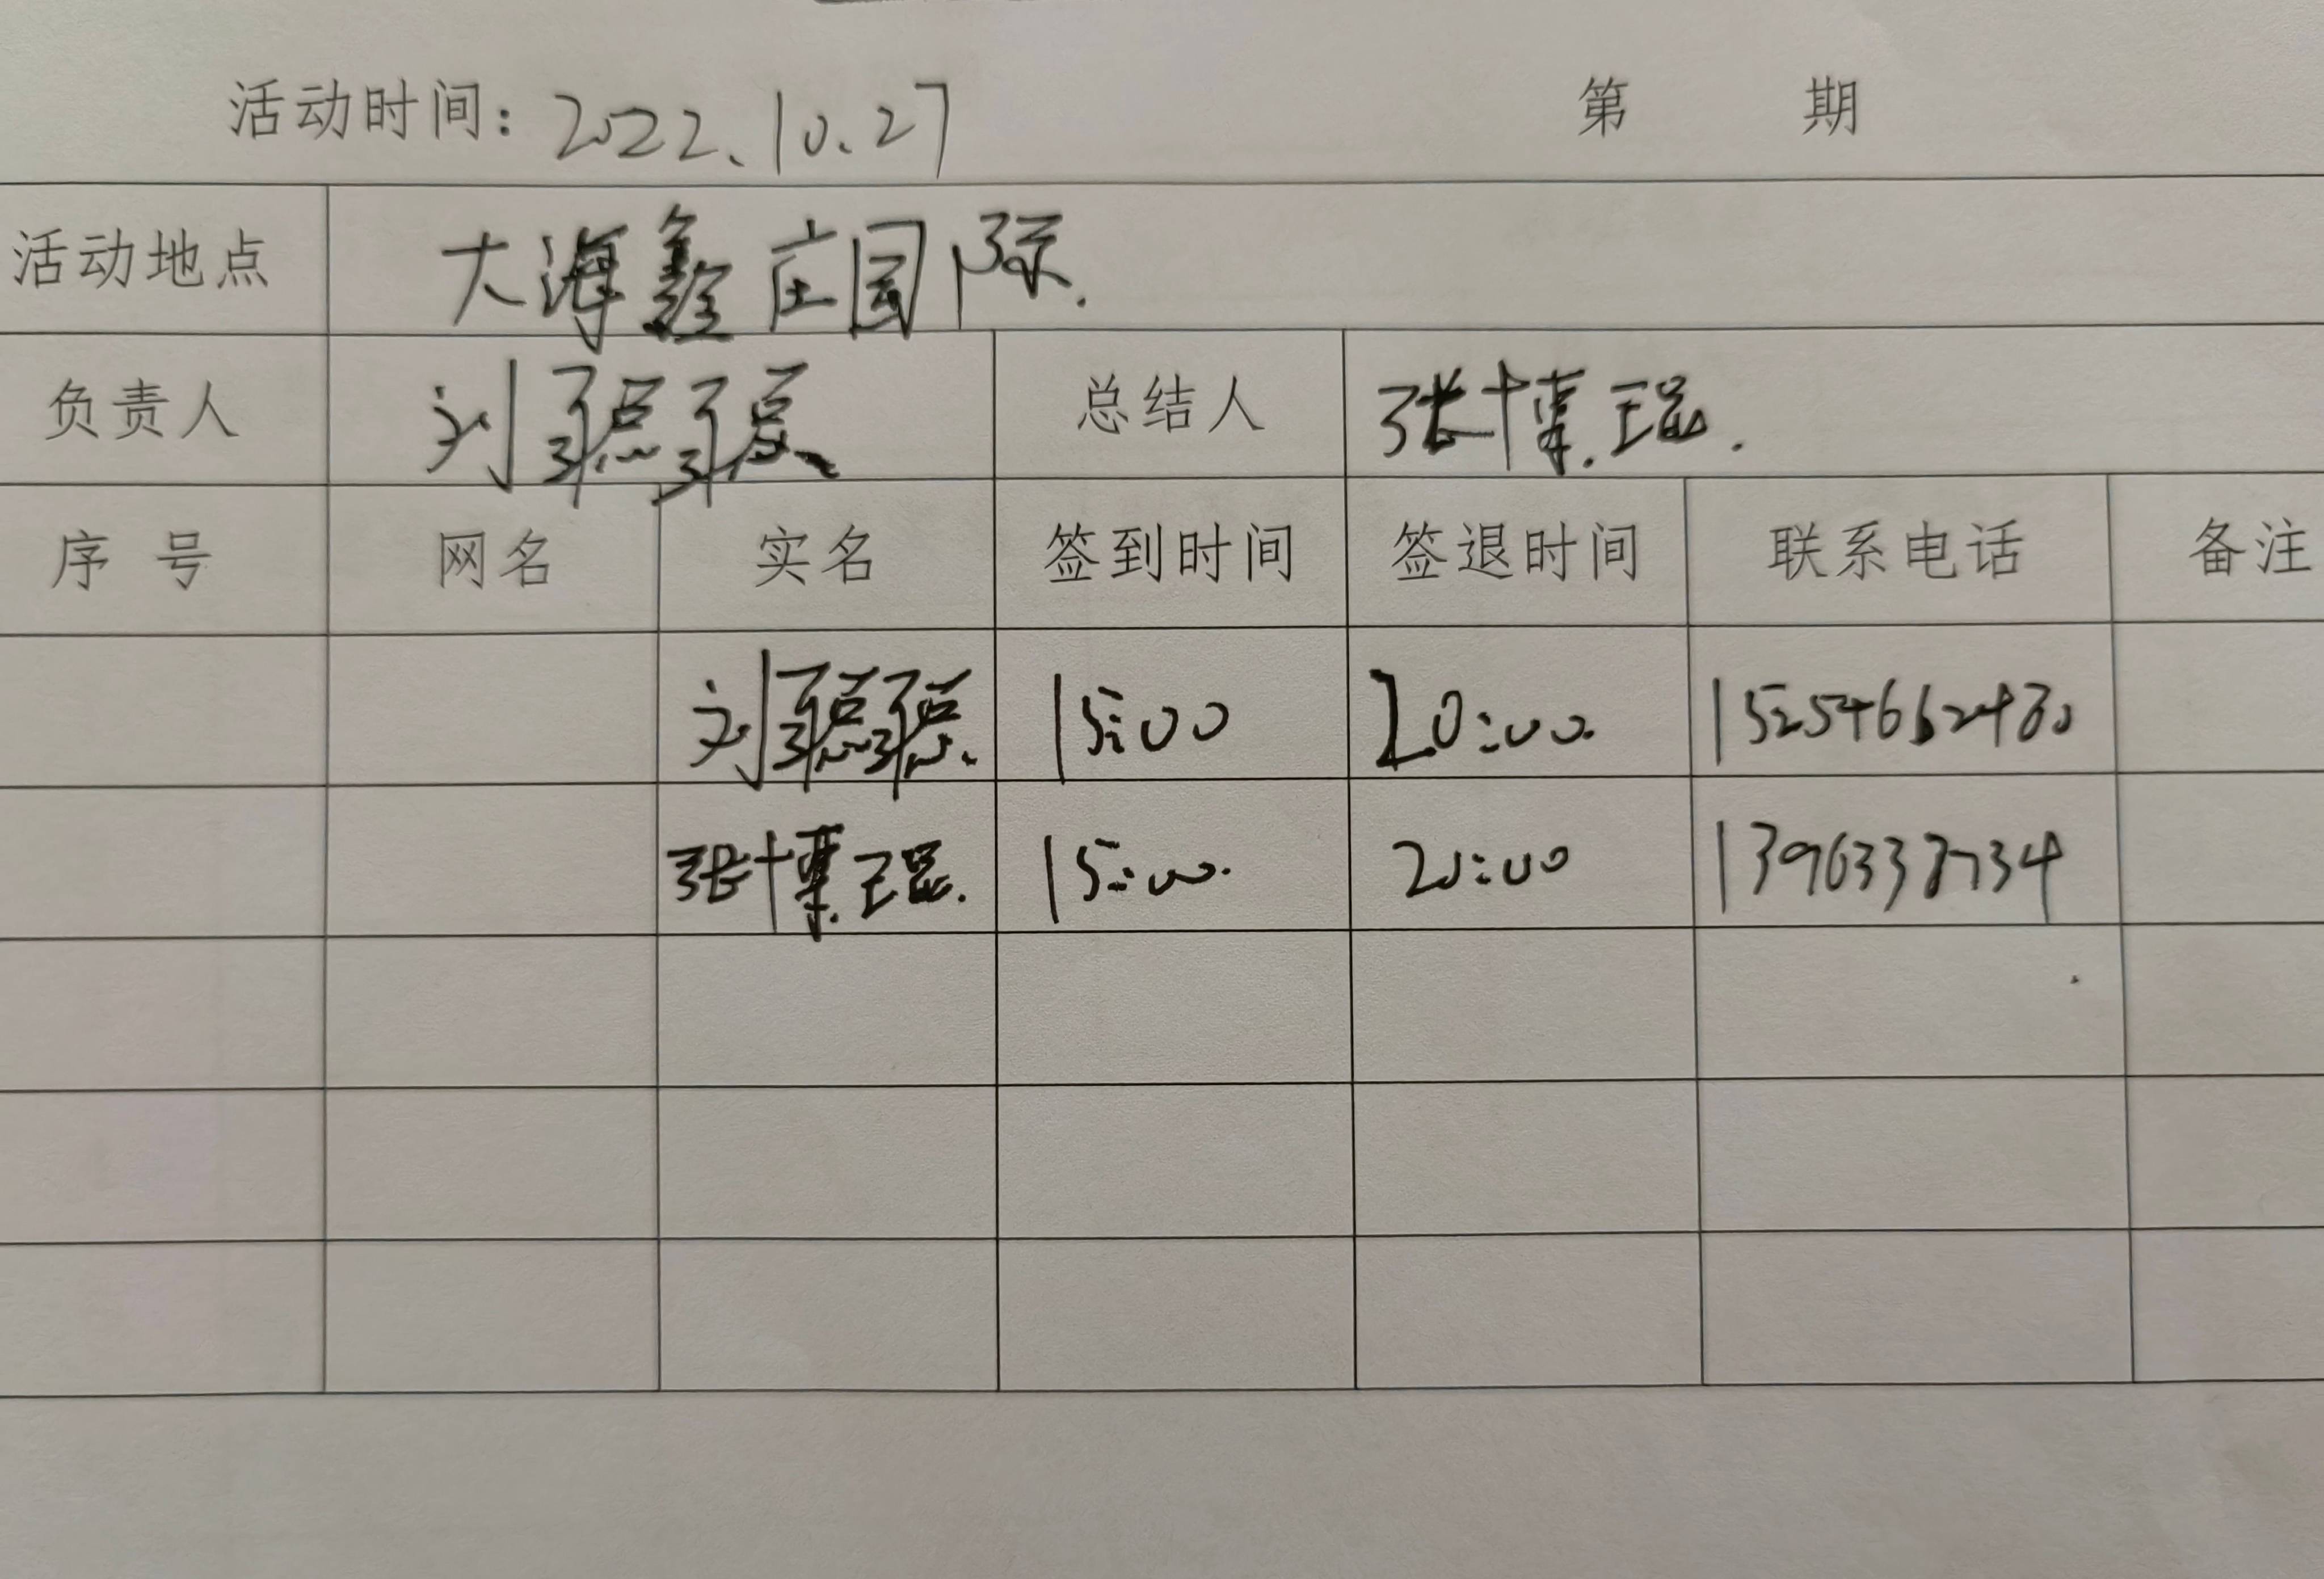 活动时间：2022.10.27 第 期
活动地点 大海鑫庄园际.
负责人 刘聪聪 总结人 张博琨.
序号 网名 实名 签到时间 签退时间 联系电话 备注
刘聪聪. 15:00 20:00. 15254662480
张博琨. 15:00. 20:00 1396338734